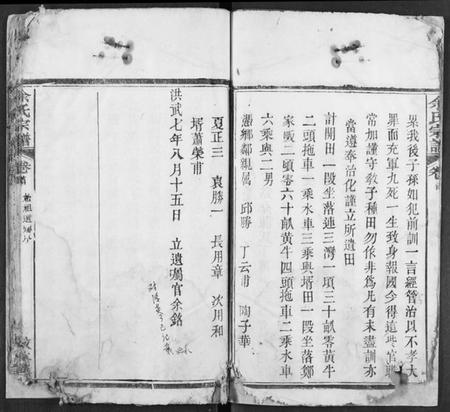 余氏宗譜
卷首
累我後子孫如犯前訓一言經管治以不孝大
罪而充軍九死一生致身報國今得這些官職
常加謹守教子種田勿依非為凡有未盡訓亦
當遵奉治化謹立所遺田
計開田一段坐落連三灣一項三十畝零黃牛
二頭拖車一乘水車三乘與壻田一段坐落鄒
家畈二頃零六十畝黃牛四頭拖車二乘水車
六乘與二男
憑鄉鄰親属 邱勝 丁云甫 陶子華
夏正三 袁勝一 長用章 沈川和
壻蕭榮甫
洪武七年八月十五日 立遺囑官余銘
余氏宗譜
卷首